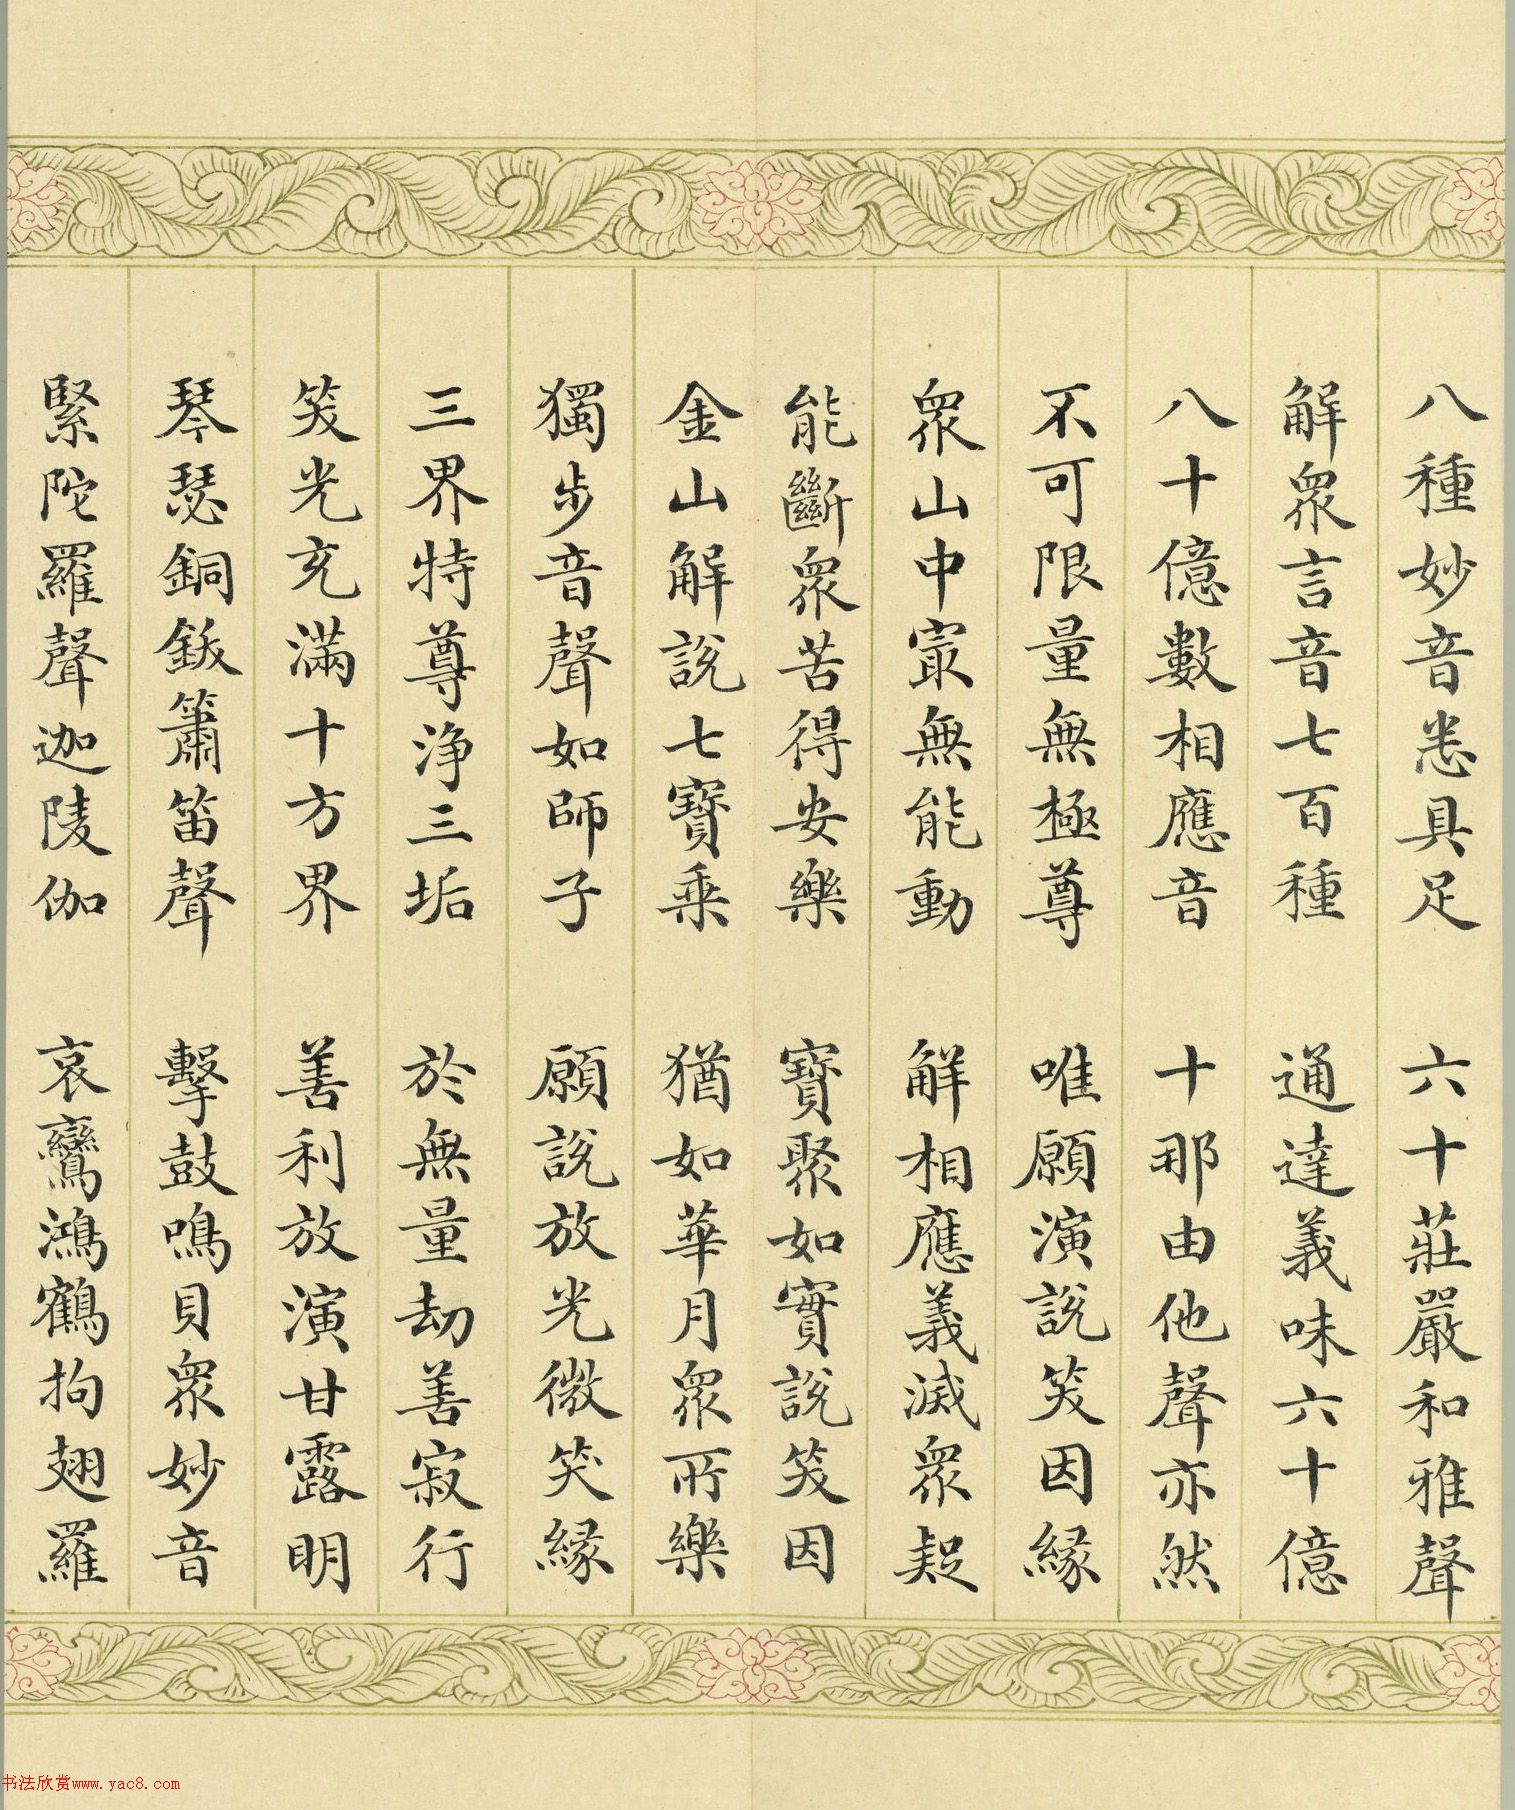 八種妙音悉具足　六十莊嚴和雅聲
解衆言音七百種　通達義味六十億
八十億數相應音　十那由他聲亦然
不可限量無極尊　唯願演說笑因緣
衆山中㝡無能動　解相應義滅衆疑
能斷衆苦得安樂　寶聚如實說笑因
金山解說七寶乘　猶如華月衆所樂
獨步音聲如師子　願說放光微笑緣
三界特尊淨三垢　於無量劫善寂行
笑光充滿十方界　善利放演甘露明
琴瑟銅鈸簫笛聲　擊鼓鳴貝衆妙音
緊陀羅聲迦陵伽　哀鸞鴻鶴拘翅羅
书法欣赏www.yac8.com